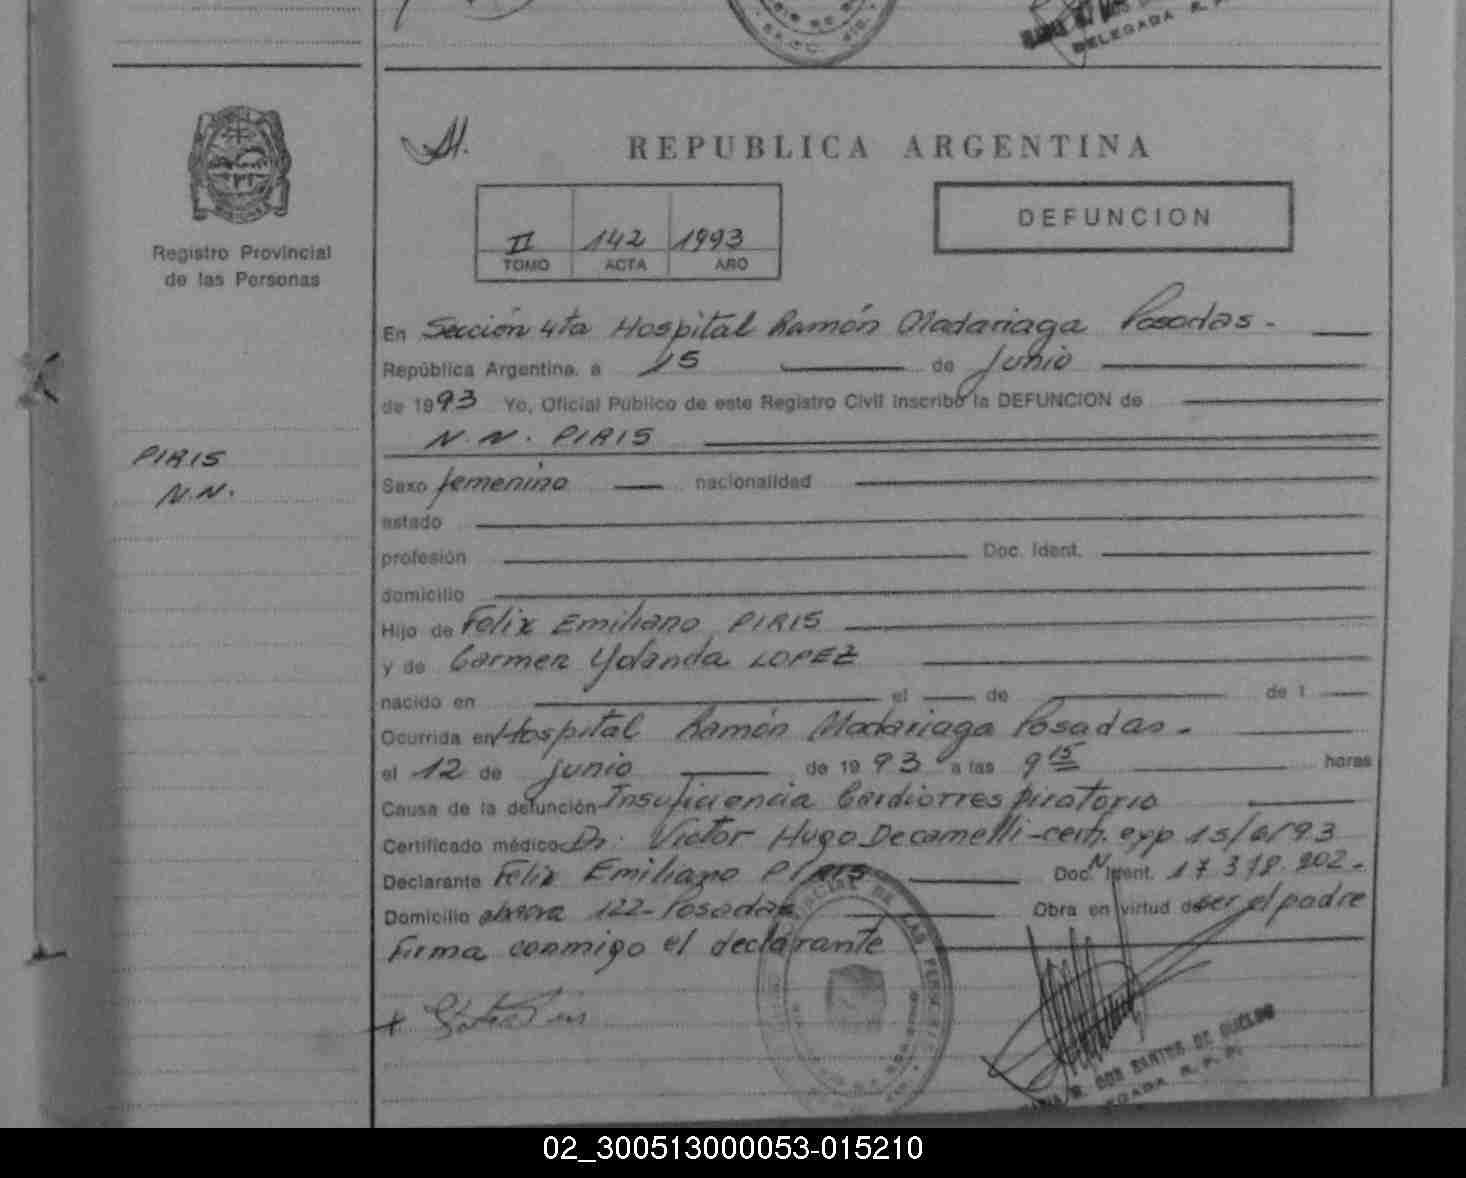 DELEGADA R. P.
REPUBLICA ARGENTINA
DEFUNCION
II 142 1993
TOMO ACTA AÑO
Registro Provincial
de las Personas
En Sección 4ta Hospital Ramón Madariaga Posadas.-
República Argentina, a 15 de junio
de 1993 Yo, Oficial Público de este Registro Civil inscribo la DEFUNCION de
N.N. PIRIS
PIRIS
N.N.
Sexo femenino nacionalidad
estado
profesión Doc. Ident.
domicilio
Hijo de Felix Emiliano PIRIS
y de Carmen Yolanda LOPEZ
nacido en el de de 1
Ocurrida en Hospital Ramón Madariaga Posadas.-
el 12 de junio de 1993 a las 9 15 horas
Causa de la defunción Insuficiencia Cardiorrespiratorio
Certificado médico Dr. Victor Hugo Decamelli-cert. exp 15/6/93
Declarante Felix Emiliano PIRIS Doc. N Ident. 17.378.202.-
Domicilio 122-Posadas Obra en virtud de ser el padre
Firma conmigo el declarante
DOS SANTOS DE
02_300513000053-015210